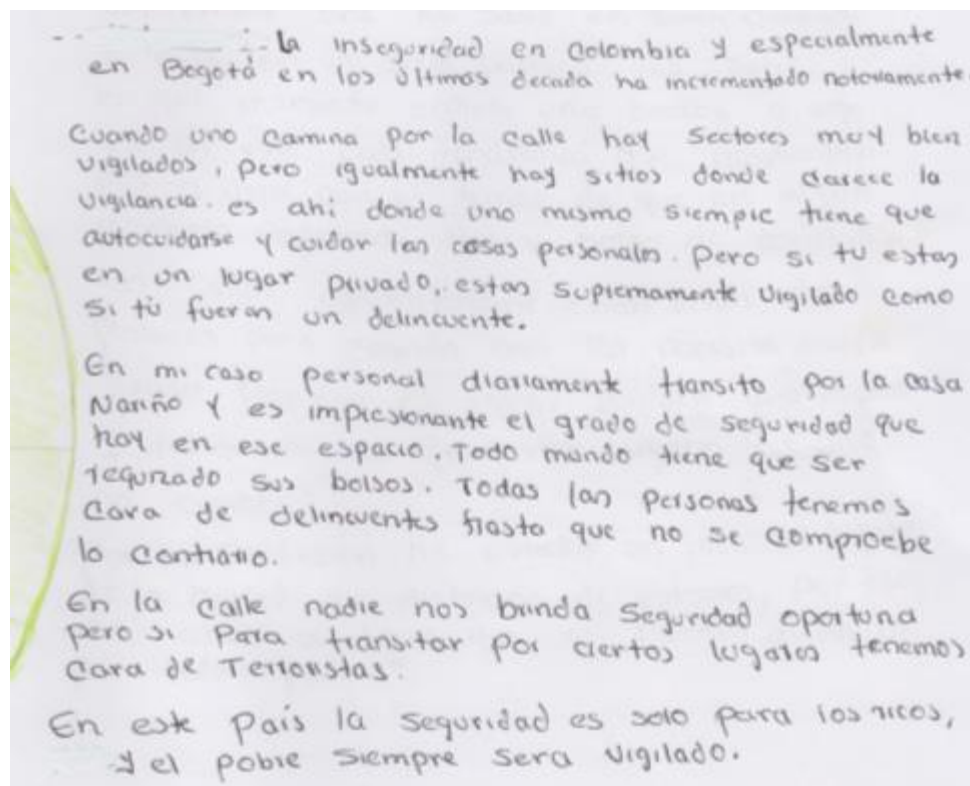 la inseguridad en Colombia y especialmente
en Bogotá en los últimos decada ha incrementado notoriamente.
Cuando uno camina por la calle hay sectores muy bien
vigilados, pero igualmente hay sitios donde carece la
vigilancia. es ahí donde uno mismo siempre tiene que
autocuidarse y cuidar las cosas personales. Pero si tu estas
en un lugar privado, estas supremamente vigilado como
si tú fueras un delincuente.
En mi caso personal diariamente transito por la casa
Nariño y es impresionante el grado de seguridad que
hay en ese espacio. Todo mundo tiene que ser
requizado sus bolsos. Todas las personas tenemos
cara de delincuentes hasta que no se compruebe
lo contrario.
En la calle nadie nos brinda seguridad oportuna
pero si para transitar por ciertos lugares tenemos
cara de Terroristas.
En este país la seguridad es solo para los ricos,
y el pobre siempre sera vigilado.